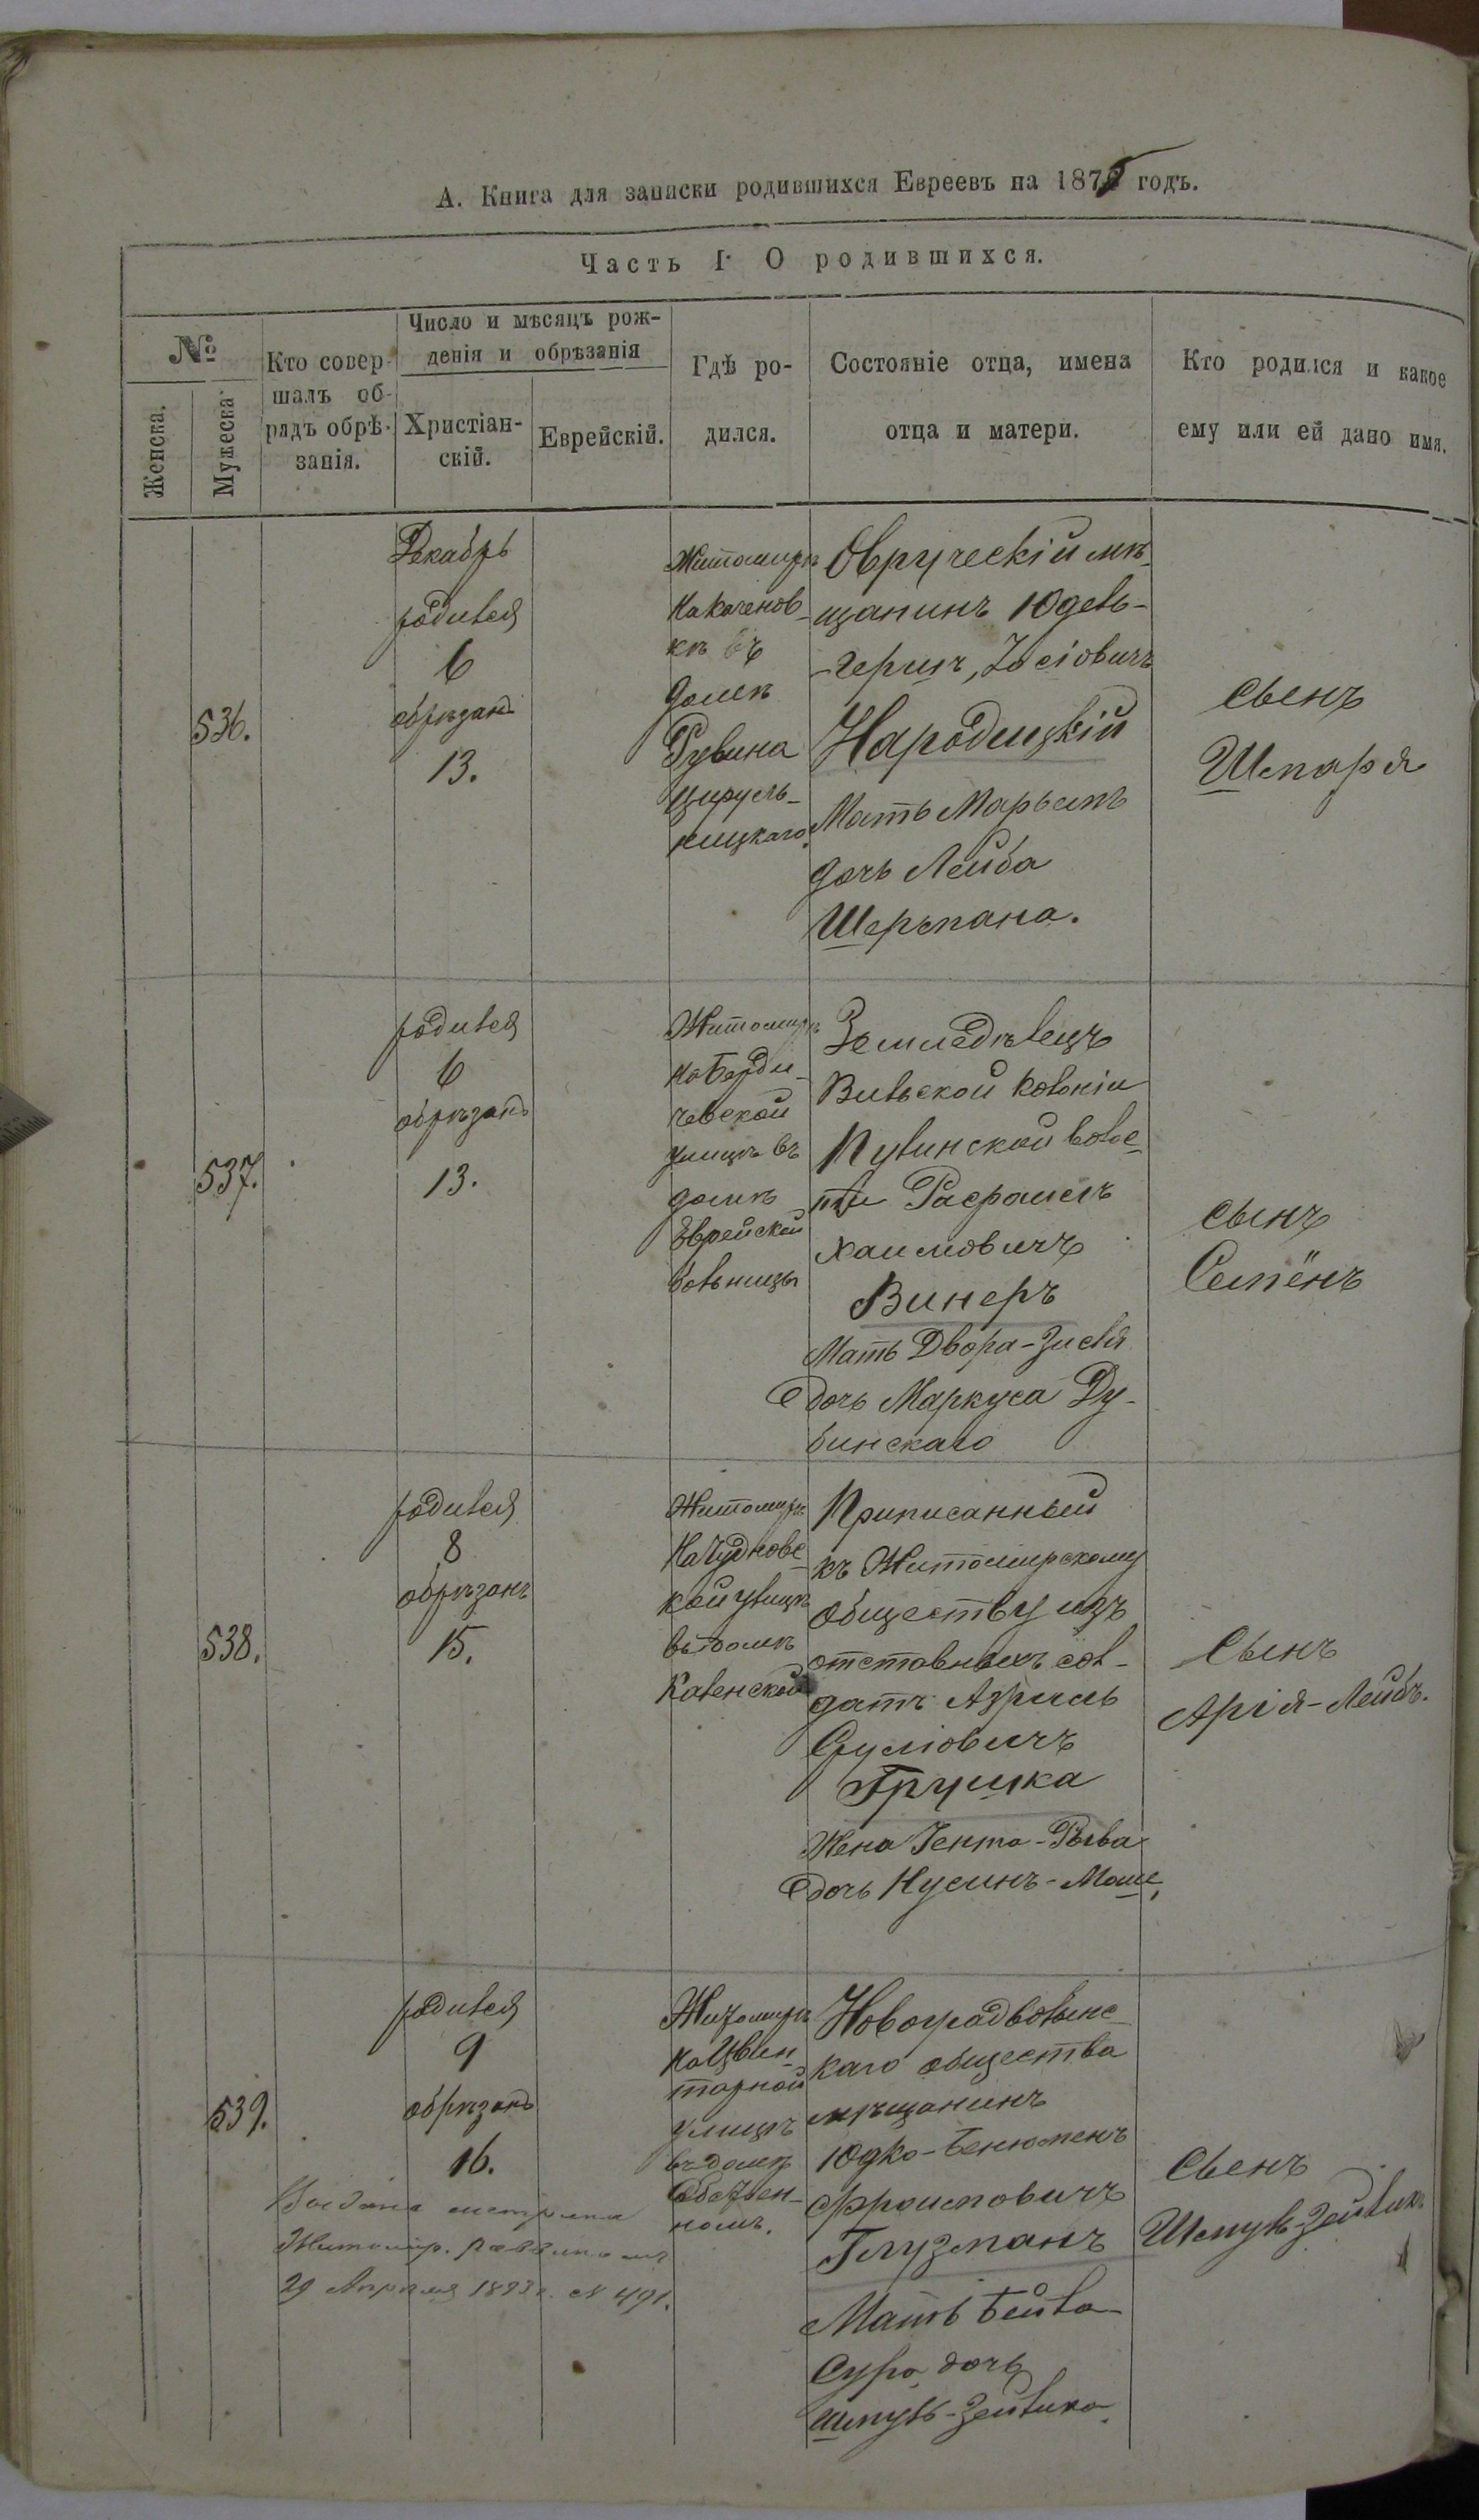 А. Книга для записки родившихся Евреевъ на 1875 годъ.
Часть I. О родившихся.
№
Женска.
Мужеска
Кто совер-
шалъ об-
рядъ обрѣ-
занія.
Число и мѣсяцъ рож-
денія и обрѣзанія
Христіан-
скій.
Еврейскій.
Гдѣ ро-
дился.
Состояніе отца, имена
отца и матери.
Кто родился и какое
ему или ей дано имя.
536.
Декабрь
родился
6
обрѣзанъ
13.
Житомирѣ
На Каченов-
кѣ въ
домѣ
Рувина
Цируль-
ницкаго.
Овруческій мѣ-
щанинъ Юдель-
-Гершъ, Іосіовичъ
Народицкій
Мать Марьемъ
дочь Лейба
Шермана.
сынъ
Шмаря
537.
родился
6
обрѣзанъ
13.
Житомирѣ
На Берди-
чевской
улицѣ въ
домѣ
Еврейской
больницы
Земледѣлецъ
Вильской колоніи
Пулинской волос-
ти Расфоиелъ
Хаимовичъ
Винеръ
Мать Двора-Зисля
дочь Маркуса Ду-
бинскаго
сынъ
Семёнъ
538.
родился
8
обрѣзанъ
15.
Житомирѣ
На Чудновс-
кой улицѣ
въ домѣ
Каленской
Приписанный
къ Житомирскому
обществу изъ
отставныхъ сол-
датъ Азриль
Сруліовичъ
Грушка
Жена Гента-Рыва
дочь Нусинъ-Моше,
Сынъ
Арія-Лейбъ.
539.
родился
9
обрѣзанъ
16.
Житомирѣ
На Цвин-
тарной
улицѣ
въ домѣ
Новоградволынс-
каго общества
мѣщанинъ
Юдко-Бенюменъ
Фроимовичъ
Глузманъ
Мать Бейла-
Сура дочь
Шмуль-Зейлика
Сынъ
Шмуль-Зейликъ
Выдана метрика
Житомір. раввиномъ
29 Апрѣля 1893 г. № 491.